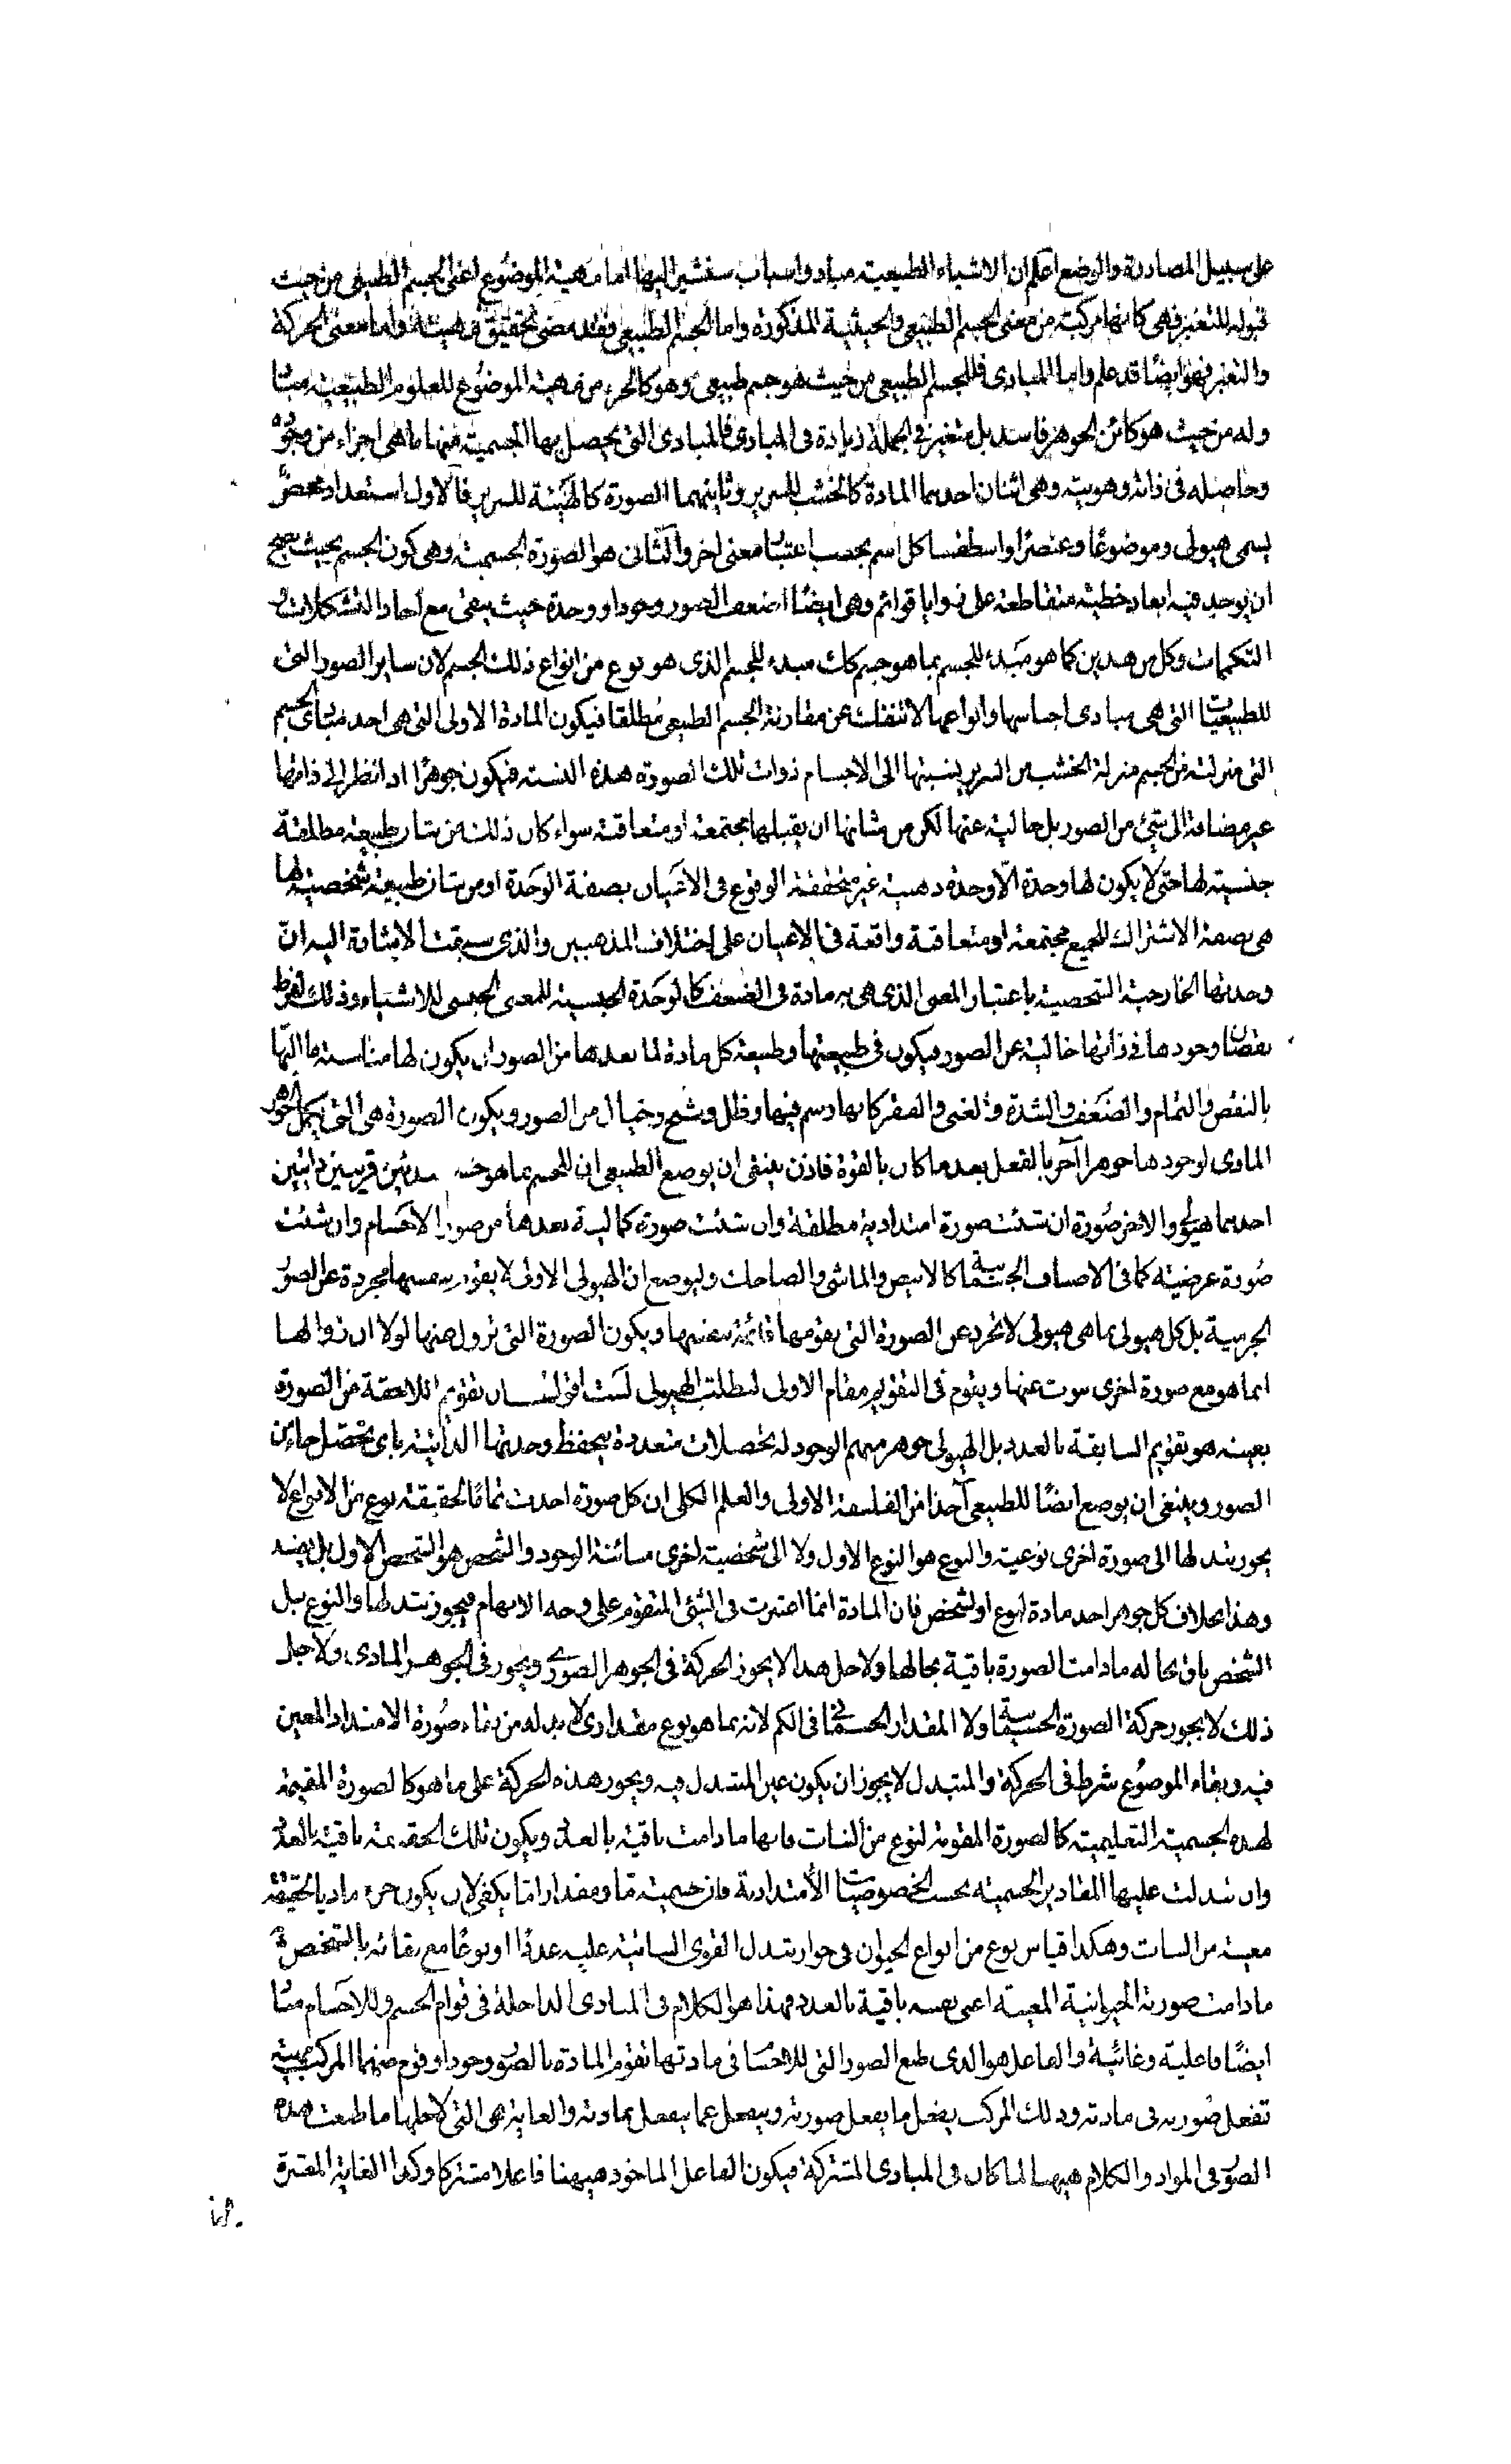 على سبيل المصادرة والوضع اعلم ان الاشياء الطبيعية مباد واسباب سنشير اليها اما مهية الموضوع اعنى الجسم الطبيعى من حيث
قبوله للتغير فهى كانها مركبة من معنى الجسم الطبيعى والحيثية المذكورة واما الجسم الطبيعى فقد مضى تحقيق مهيته واما معنى الحركة
والتغير فهو ايضًا قد علم واما المبادى فللجسم الطبيعى من حيث هو جسم طبيعى وهو كالجزء من مهية الموضوع للعلوم الطبيعية مباد
وله من حيث هو كائن الجوهر فاسد بل متغير فى الجملة زيادة فى المبادى فالمبادى التى يحصل بها الجسمية منها ما هى اجزاء من وجوده
وحاصله فى ذاته وهويته وهى اثنان احديهما المادة كالخشب للسرير وثانيتهما الصورة كالهيئة للسرير فالاول استعداد محض
يسمى هيولى وموضوعًا وعنصرًا واسطقسا كل اسم بحسب اعتبار معنى اخر والثانى هو الصورة الجسمية وهى كون الجسم بحيث يصح
ان يوجد فيه ابعاد خطية متقاطعة على زوايا قوائم وهى ايضًا اضعف الصور وجودا ووحدة حيث يبقى مع احاد التشكلات و
التكممات وكل من هذين كما هو مبدء للجسم بما هو جسم كك مبدء للجسم الذى هو نوع من انواع ذلك الجسم لان ساير الصور التى
للطبيعيات التى هى مبادى اجناسها وانواعها لا تنفك عن مقارنة الجسم الطبيعى مطلقا فيكون المادة الاولى التى هى احد مبادى الجسم
التى منزلته من الجسم منزلة الخشب من السرير بنسبتها الى الاجسام ذوات تلك الصورة هذه النسبة فيكون جوهرًا اذا نظر الى ذاتها
غير مضافة الى شئ من الصور بل خالية عنها لكن من شانها ان يقبلها مجتمعة او متعاقبة سواء كان ذلك من شان طبيعة مطلقة
جنسية لها حتى لا يكون لها وحدة الا وحدة ذهنية غير متحققة الوقوع فى الاعيان بصفة الوحدة او من شان طبيعة شخصية لها
هى بصفة الاشتراك للجميع مجتمعة او متعاقبة واقعة فى الاعيان على اختلاف المذهبين والذى سبقت الاشارة اليه ان
وحدتها الخارجية الشخصية باعتبار المعنى الذى هى به مادة فى الضعف كالوحدة الجنسية للمعنى الجنسى للاشياء وذلك لفرط
نقصان وجودها فى ذاتها خالية عن الصور فيكون فى طبيعتها وطبيعة كل مادة لما بعدها من الصور ان يكون لها مناسبة ما اليها
بالنقص والتمام والضعف والشدة والغنى والفقر كانها رسم فيها وظل وشبح وخيال من الصور ويكون الصورة هى التى يكمل الجوهر
المادى لوجودها جوهرا آخر بالفعل بعد ما كان بالقوة فاذن ينبغى ان يوضع الطبيعى ان للجسم بما هو جسم مبدئين قريبين ذاتيين
احديهما هيولى والاخر صورة ان شئت صورة امتدادية مطلقة وان شئت صورة كمالية بعدها من صور الاجسام وان شئت
صورة عرضية كما فى الاصناف الجسمانية كالابيض والماشى والضاحك وليوضع ان الهيولى الاولى لا يقوم بنفسها مجردة عن الصور
الجرمية بل كل هيولى بما هى هيولى لا تجرد عن الصورة التى يقومها قائمة بنفسها ويكون الصورة التى تزول عنها لولا ان زوالها
انما هو مع صورة اخرى ينوب عنها ويقوم فى التقويم مقام الاولى لبطلت الهيولى لست اقول ان تقويم اللاحقة من الصورة
بعينه هو تقويم السابقة بالعدد بل الهيولى جوهر مبهم الوجود له تحصلات متعددة ينحفظ وحدتها الذاتية باى تحصل جاء من
الصور وينبغى ان يوضع ايضًا للطبيعى آخذا من الفلسفة الاولى والعلم الكلى ان كل صورة اخذت تمامًا لحقيقة نوع من الانواع لا
يجوز تبدلها الى صورة اخرى نوعية والنوع هو النوع الاول ولا الى شخصية اخرى مبائنة الوجود والشخص هو الشخص الاول بل يفسد
وهذا بخلاف كل جوهر اخذ مادة لنوع او لشخص فان المادة انما اعتبرت فى الشئ المتقوم على وجه الابهام فيجوز تبدلها والنوع بل
الشخص باق بحاله ما دامت الصورة باقية بحالها ولاجل هذا لا يجوز الحركة فى الجوهر الصورى ويجوز فى الجوهر المادى ولاجل
ذلك لا يجوز حركة الصورة الجسمانية ولا المقدار الجسمانى فى الكم لانه بما هو نوع مقدارى لا بد له من بقاء صورة الامتداد المعين
فيه وبقاء الموضوع شرط فى الحركة والمتبدل لا يجوز ان يكون عين المتبدل فيه ويجوز هذه الحركة على ما هو كالصورة المقيمة
لهذه الجسمية التعليمية كالصورة المقومة لنوع من النبات فانها ما دامت باقية بالعدد ويكون تلك الحقيقة باقية بالعدد
وان تبدلت عليها المقادير الجسمية بحسب الخصوصيات الامتدادية فان جسمية ما ومقدارا ما يكفى لان يكون جزء ماديا لحقيقة
معينة من النبات وهكذا قياس نوع من انواع الحيوان فى جواز تبدل القوى النباتية عليه عددًا او نوعًا مع بقائه بالشخص
ما دامت صورته الحيوانية المعينة اعنى نفسه باقية بالعدد فهذا هو الكلام فى المبادى الداخلة فى قوام الجسم وللاجسام مباد
ايضًا فاعلية وغائية والفاعل هو الذى طبع الصور التى للاجسام فى مادتها فقوم المادة بالصور وجودا وقوم منهما المركب مهية
تفعل صورته فى مادته وذلك المركب يفعل ما يفعل بصورته وينفعل عما ينفعل بمادته والغاية هى التى لاجلها ما طبعت هذه
الصور فى المواد والكلام هيهنا لما كان فى المبادى المشتركة فيكون الفاعل الماخوذ هيهنا فاعلا مشتركا وكذا الغاية المعتبرة